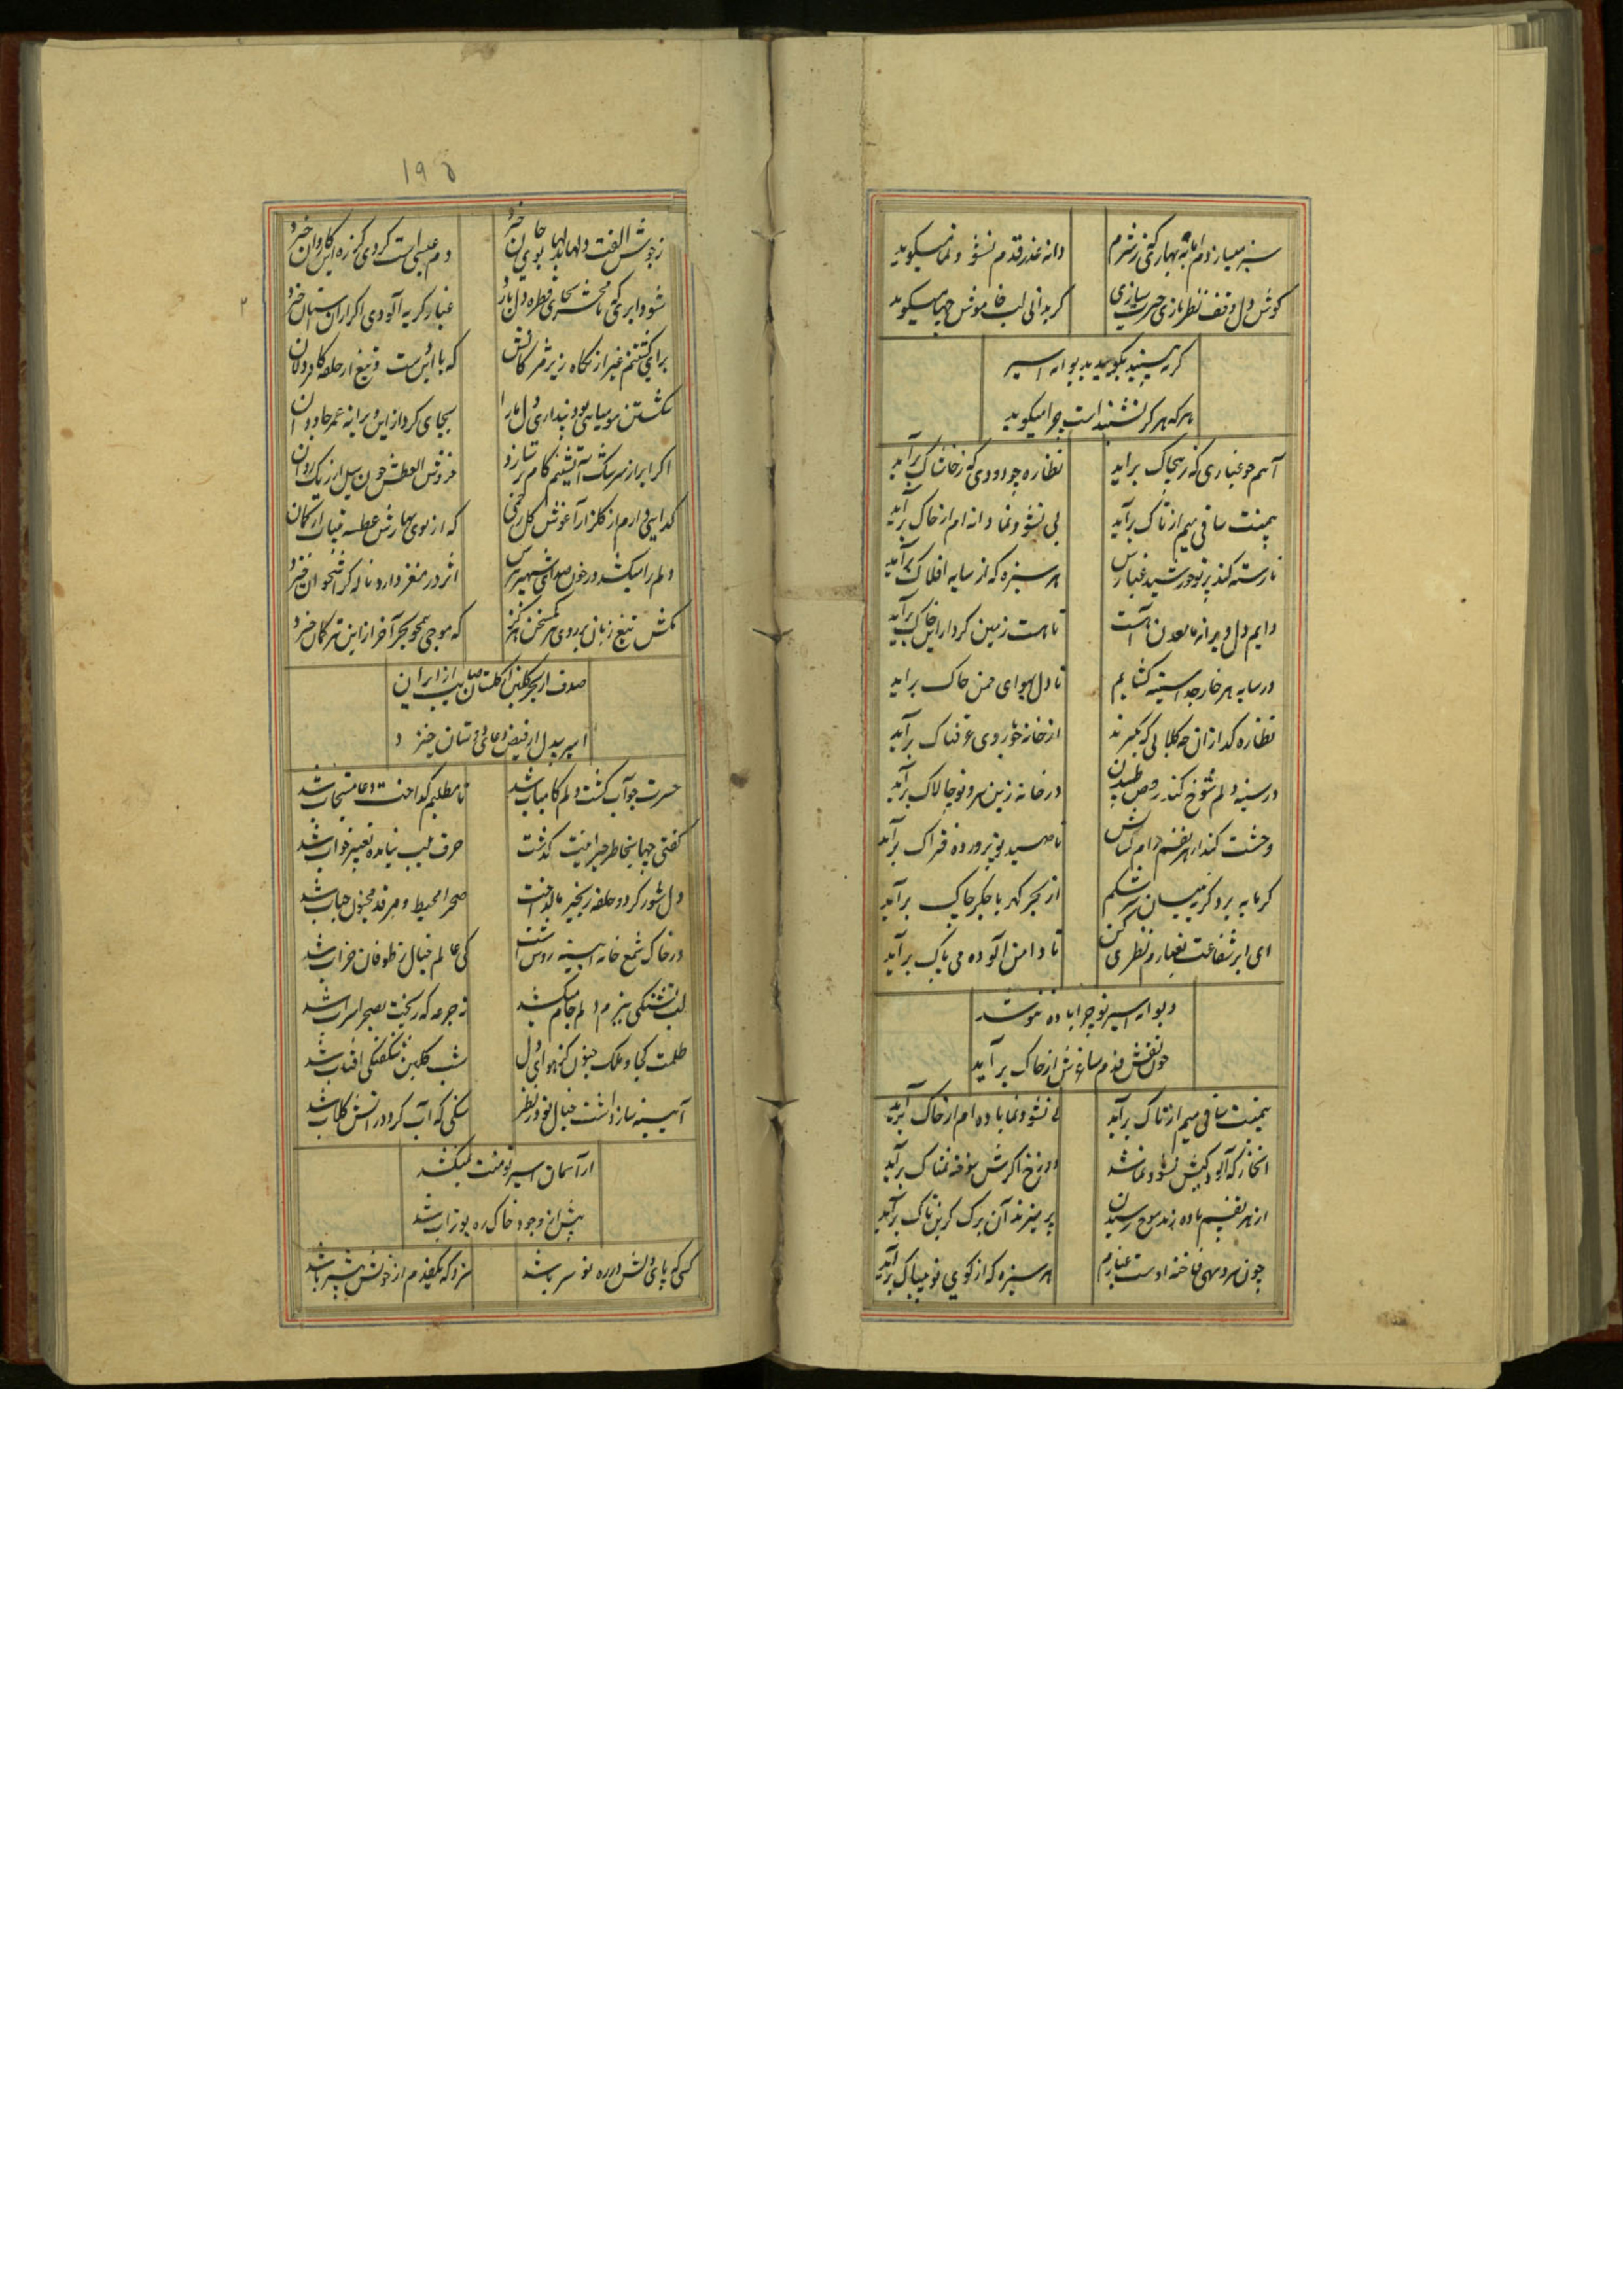 سبز میسازد مرا بهاری کز شرم
دانه عذر قدم نشو و نما میگوید
گوش دل وقف نظربازی حیرت سازی
گر بدانی لب خاموش چها میگوید
گر ببینید بگویید بدیوانه اسیر
هر که هرگز نشنیدست چرا میگوید
آهم چو غباری که ز خاک برآید
نظاره چو دودی که ز خاشاک برآید
بیمنت ساقی میم از تاک برآید
بی نشو و نما دانه ام از خاک برآید
نارسته کند پرتو خورشید غبارش
هر سبزه که از سایه افلاک برآید
دایم دل ویرانه ما معدن
تا هست زمین گرد از این خاک برآید
در سایه هر خار چو آیینه گشایم
تا دل بهوای چمن خاک برآید
نظاره گدازان چه گلابی که نگیرند
از خانه چو با روی عرقناک برآید
در سینه دلم شوخ کند رقص طپیدن
در خانه زین سرو تو چالاک برآید
وحشت کند از هر نفسم دام
تا صید تو پرورده فتراک برآید
گر مایه برد گریه نیسان ز سرشکم
از بحر گهر با جگر چاک برآید
ای ابر شفاعت بغبارم نظری کن
تا دامن آلوده می پاک برآید
دیوانه اسیر تو چرا باده ننوشد
چون نقش قدم ساغرش از خاک برآید
بیمنت ساقی میم از تاک برآید
بی نشو و نما باده ام از خاک برآید
آنجا که آلودگیش نشو و نما شد
دوزخ اگرش سوخته نمناک برآید
از هر نفسم باده زند موج رسیدن
پر میزند آن برگ کزین تاک برآید
چون سرو سهی فاخته اوست غبارم
هر سبزه که از کوی تو بیباک برآید
۱۹۵
ز جوش الفت دلها بدلها بوی جان خیزد
دم عیسی است گردی کز ره این کاروان خیزد
شود ابری که تا محشر بجای قطره دل بارد
غبار گریه آلودی اگر از آستان خیزد
برای کشتنم غیر از نگاه زیر
که با
شکستن مومیایی بود پنداری دل ما را
بجای گرد از این ویرانه عمر جاودان
اگر ابر از سرشک آتشینم کام بردارد
خروش العطش چون سیل از ریگ روان
گدایی دارم از گلزار آغوش گل زخمی
که از بوی بهارش عطسه
دلم را میکشد در خون صدای شهپر
اثر در مغز دارد ناله کز استخوان خیزد
مکش تیغ زبان بر روی هر کمسخن هرگز
که موجی همچو بحر آخر از این تر کان خیزد
صدف از بحر گلبن از گلستان صایب از ایران
اسیر بیدل از فیض دعای دوستان خیزد
حسرت چو آب گشت دلم کامیاب شد
تا مطلبم گداخت دعا مستجاب شد
گفتی چها بخاطر حیرانیت گذشت
حرف بلب نیامده تعبیر خواب شد
دل شور کرد و حلقه زنجیر ما گداخت
صحرا محیط و مرقد مجنون حباب شد
در خاک شمع خانه آیینه روشن است
کی عالم خیال ز طوفان خراب شد
لب تشنگی ببزم دلم جام میکشد
ته جرعه که ریخت بصحرا سراب شد
ظلمت کجا و ملک جنون کز هوای دل
شب گلبن شکفتگی آفتاب شد
آیینه ساز داشت خیال تو در نظر
سنگی که آب کرد در آتش گلاب شد
از آسمان اسیر تو منت نمیکشد
پیش از وجود خاک ره بوتراب شد
کسی که پای دلش در ره تو سر باشد
سزد که یکقدم از خویش پیشتر باشد